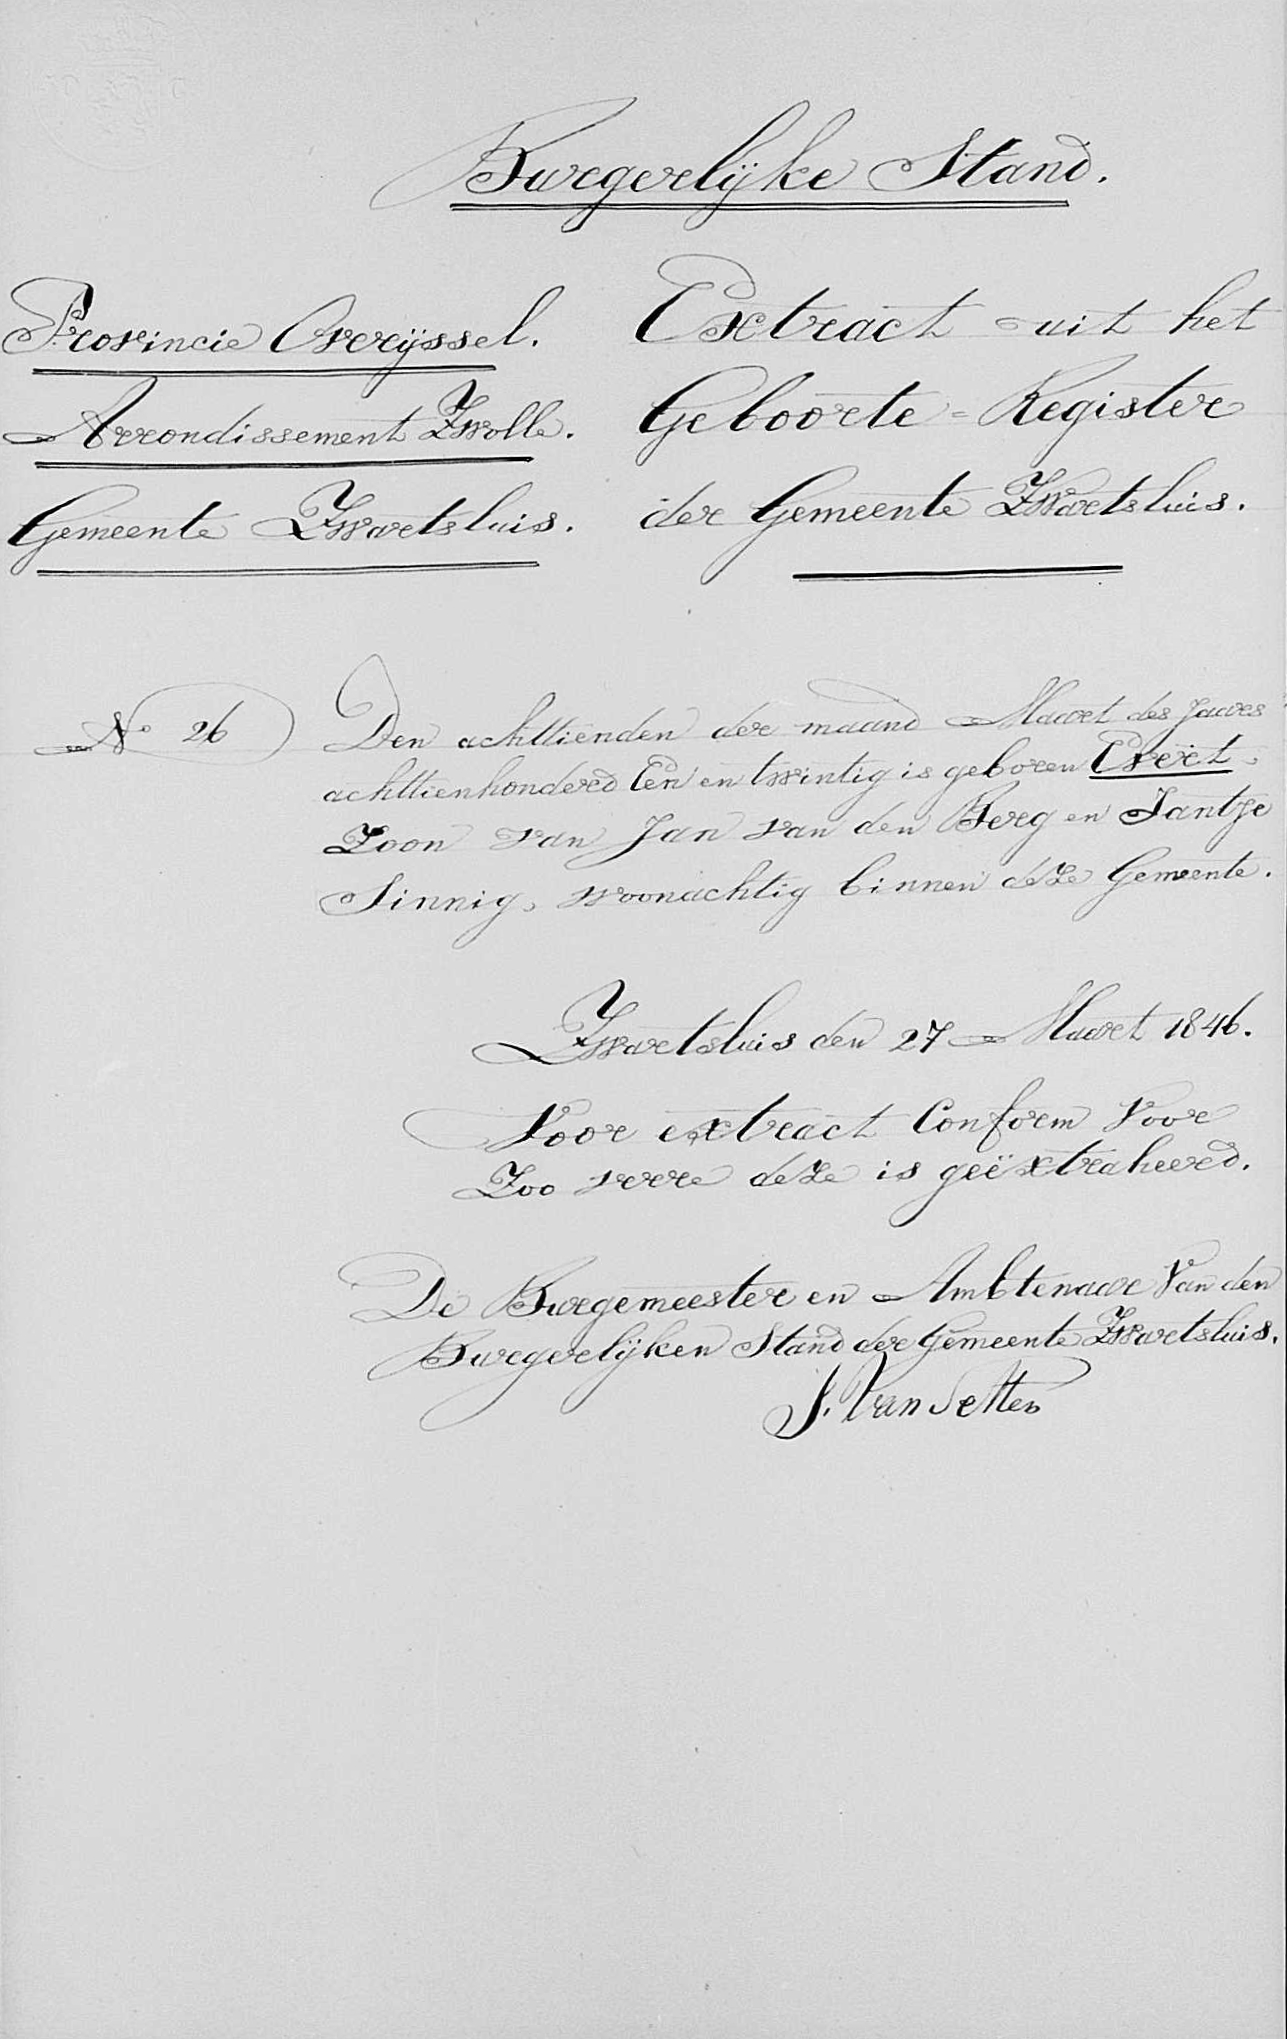 Burgerlijke Stand.
Provincie Overijssel.
Arrondissement Zwolle.
Gemeente Zwartsluis.
Extract uit het
Geboorte-Register
der Gemeente Zwartsluis.
No 26
Den achttienden der maand Maart des Jaars
achttienhonderd Een en twintig is geboren Evert
Zoon van Jan van den Berg en Jantje
Sinnig, woonachtig binnen deze Gemeente.
Zwartsluis den 27 Maart 1846.
Voor extract Conform Voor
Zoo verre deze is geëxtraheerd.
De Burgemeester en Ambtenaar Van den
Burgerlijken Stand der Gemeente Zwartsluis.
J. Van Setten